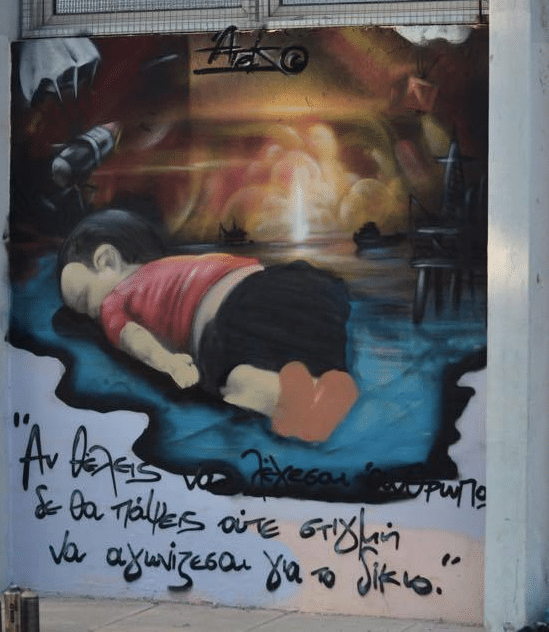 Art ©
"Αν θέλεις να λέγεσαι άνθρωπο
δε θα πάψεις ούτε στιγμή
να αγωνίζεσαι για το δίκιο."